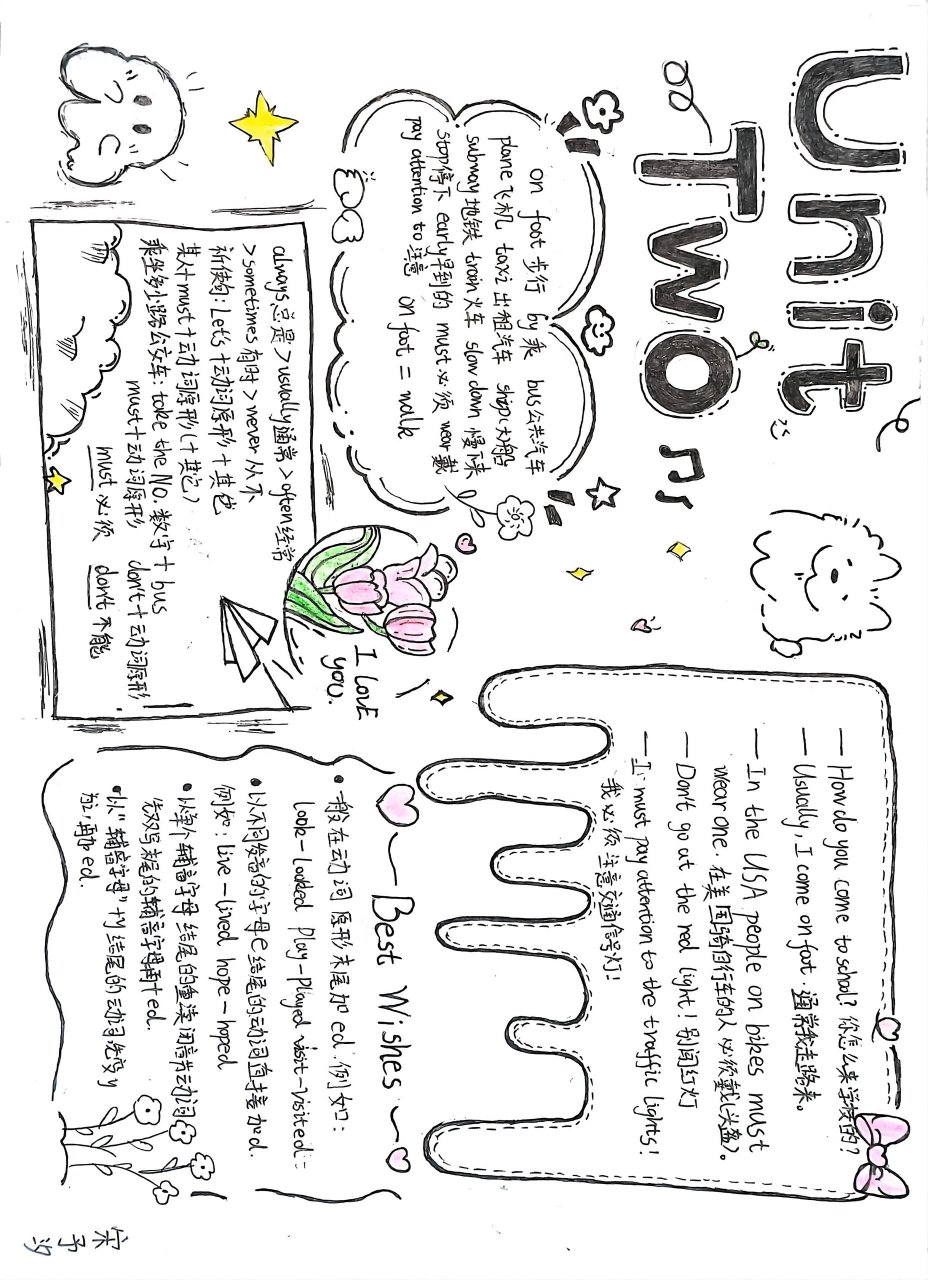 Unit
Two
on foot 步行 by 乘 bus 公共汽车
plane 飞机 taxi 出租汽车 ship (大)船
subway 地铁 train 火车 slow down 慢下来
stop 停下 early 早到的 must 必须 wear 戴
pay attention to 注意 on foot = walk
always 总是 > usually 通常 > often 经常
> sometimes 有时 > never 从不
祈使句: Let's + 动词原形 + 其它
某人 + must + 动词原形 (+ 其它)
乘坐多少路公交车: take the No. 数字 + bus
must + 动词原形 don't + 动词原形
must 必须 don't 不能
I LOVE
YOU.
— How do you come to school? 你怎么来学校的?
— Usually, I come on foot. 通常我走路来。
— In the USA people on bikes must
wear one. 在美国骑自行车的人必须戴(头盔)。
— Don't go at the red light! 别闯红灯
— I must pay attention to the traffic lights!
我必须注意交通信号灯!
Best Wishes
• 一般在动词原形末尾加 ed. 例如:
look-looked Play-Played visit-visited
• 以不发音的字母 e 结尾的动词直接加 d.
例如: live-lived hope-hoped
• 以单个辅音字母结尾的重读闭音节动词
先双写末尾的辅音字母再+ed.
• 以"辅音字母"+y 结尾的动词先变 y
为i,再加ed.
宋予汐